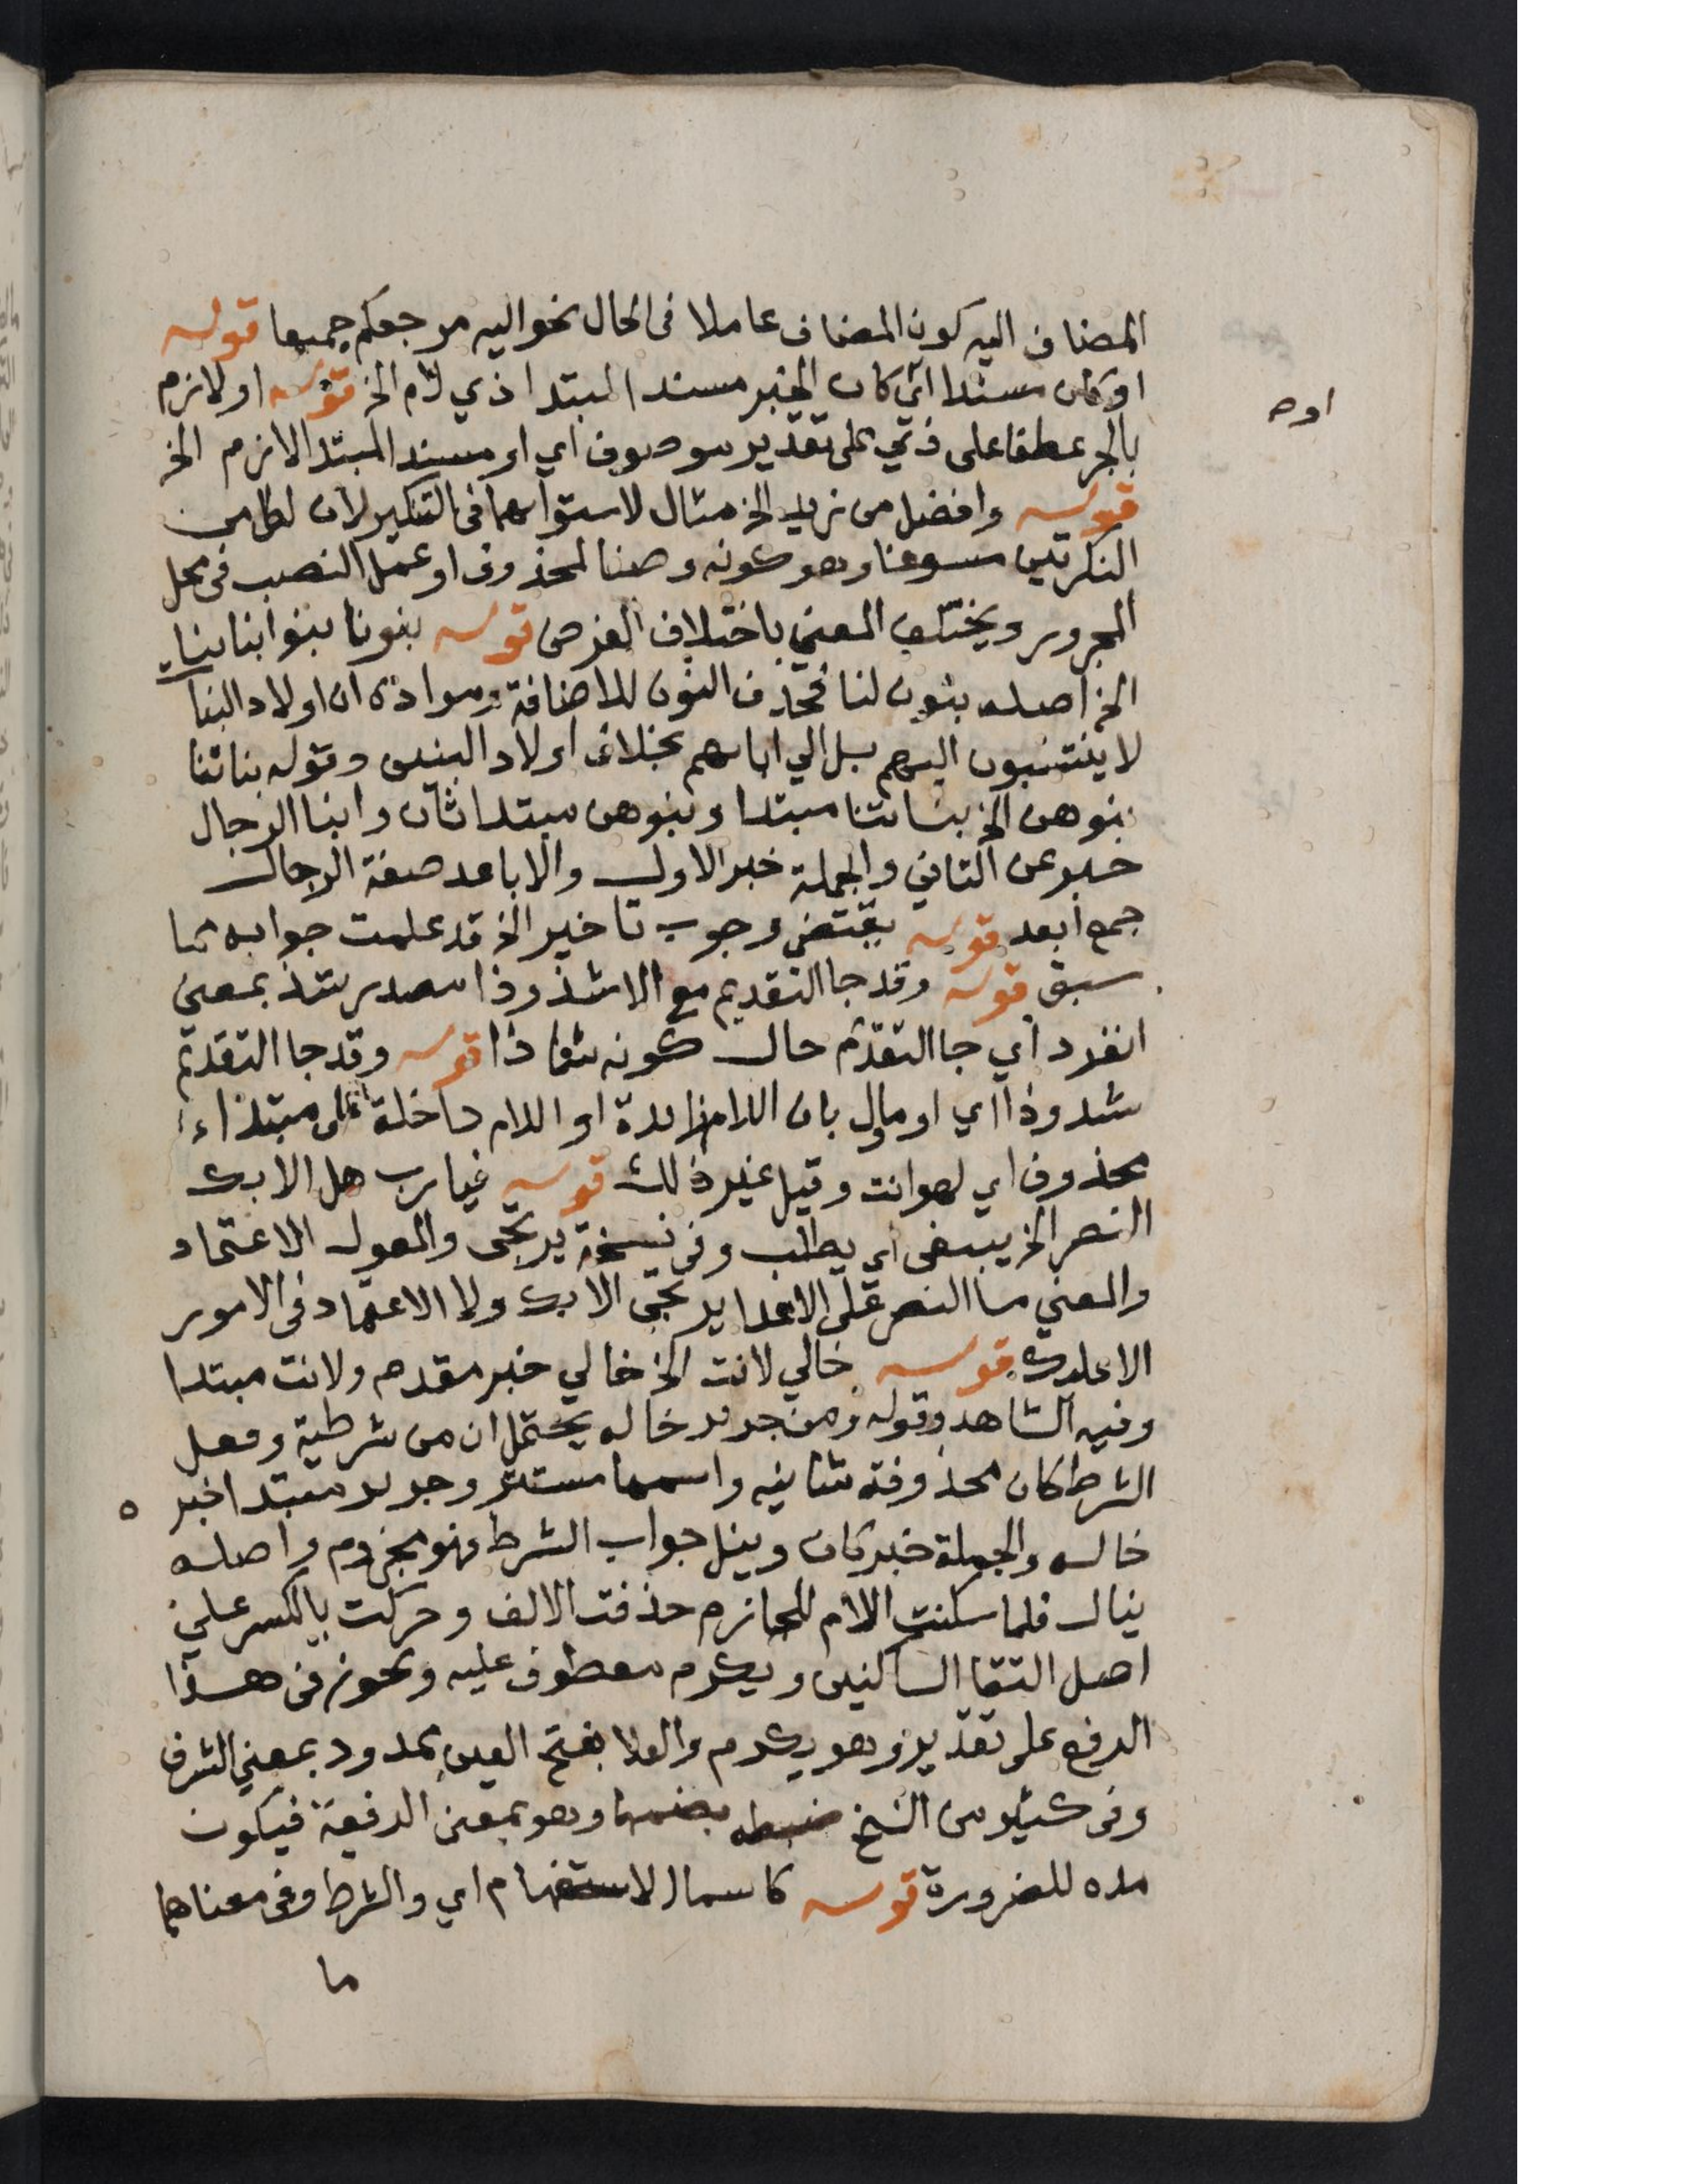 المضاف اليه كون المضاف عاملا فى الحال نحو اليه مرجعكم جميعا قوله
او كان مسندا اي كان الخبر مسند المبتدا ذي لام الخ قوله او لازم
اوه
بالجر عطفا على ذي على تقدير موصوف اي او مسند المبتدا لازم الخ
قوله وافضل من زيد الخ مثال لاستوائهما فى التنكير لان لكل من
النكرتين مسوغا وهو كونه وصفا لمحذوف او عمل النصب فى محل
المجرور ويختلف المعني باختلاف الغرض قوله بنونا بنوا ابناينا
الخ اصله بنون لنا فحذف النون للاضافة ومراده ان اولاد البنات
لا ينتسبون اليهم بل الي ابايهم بخلاف اولاد البنين وقوله بناتنا
بنوهن الخ بناتنا مبتدا وبنوهن مبتدا ثان وابنا الرجال
خبر عن الثاني والجملة خبر الاول والاباعد صفة الرجال
جمع ابعد قوله يقتضي وجوب تاخير الخ قد علمت جوابه مما
سبق قوله وقد جا التقديم مع الا شذوذا مصدر شذ بمعني
انفرد اي جا التقدم حال كونه شاذا قوله وقد جا التقديم
شذوذا اي او مأول بان اللام زايدة او اللام داخلة على مبتداء
محذوف اي لهو انت وقيل غير ذلك قوله فيا رب هل الا بك
النصر الخ يبتغى اي يطلب وفى نسخة يرتجى والمعول الاعتماد
والمعني ما النصر على الاعدا يرتجى الا بك ولا الاعتماد فى الامور
الا عليك قوله خالي لانت الخ خالي خبر مقدم ولانت مبتدا
وفيه الشاهد وقوله ومن جرير خاله يحتمل ان من شرطية وفعل
الشرط كان محذوفة شانيه واسمها مستتر وجرير مبتدا خبر ه
خاله والجملة خبر كان وينل جواب الشرط فهو مجزوم واصله
ينال فلما سكنت اللام للجازم حذفت الالف وحركت بالكسر علي
اصل التقا الساكنين ويكرم معطوف عليه ويجوز فى هذا
الرفع على تقدير وهو يكرم والعلا بفتح العين ممدود بمعني الشرف
وفى كثير من النسخ ضبطه بضمها وهو بمعنى الرفعة فيكون
مده للضرورة قوله كاسما الاستفهام اي والشرط وفى معناهما
ما